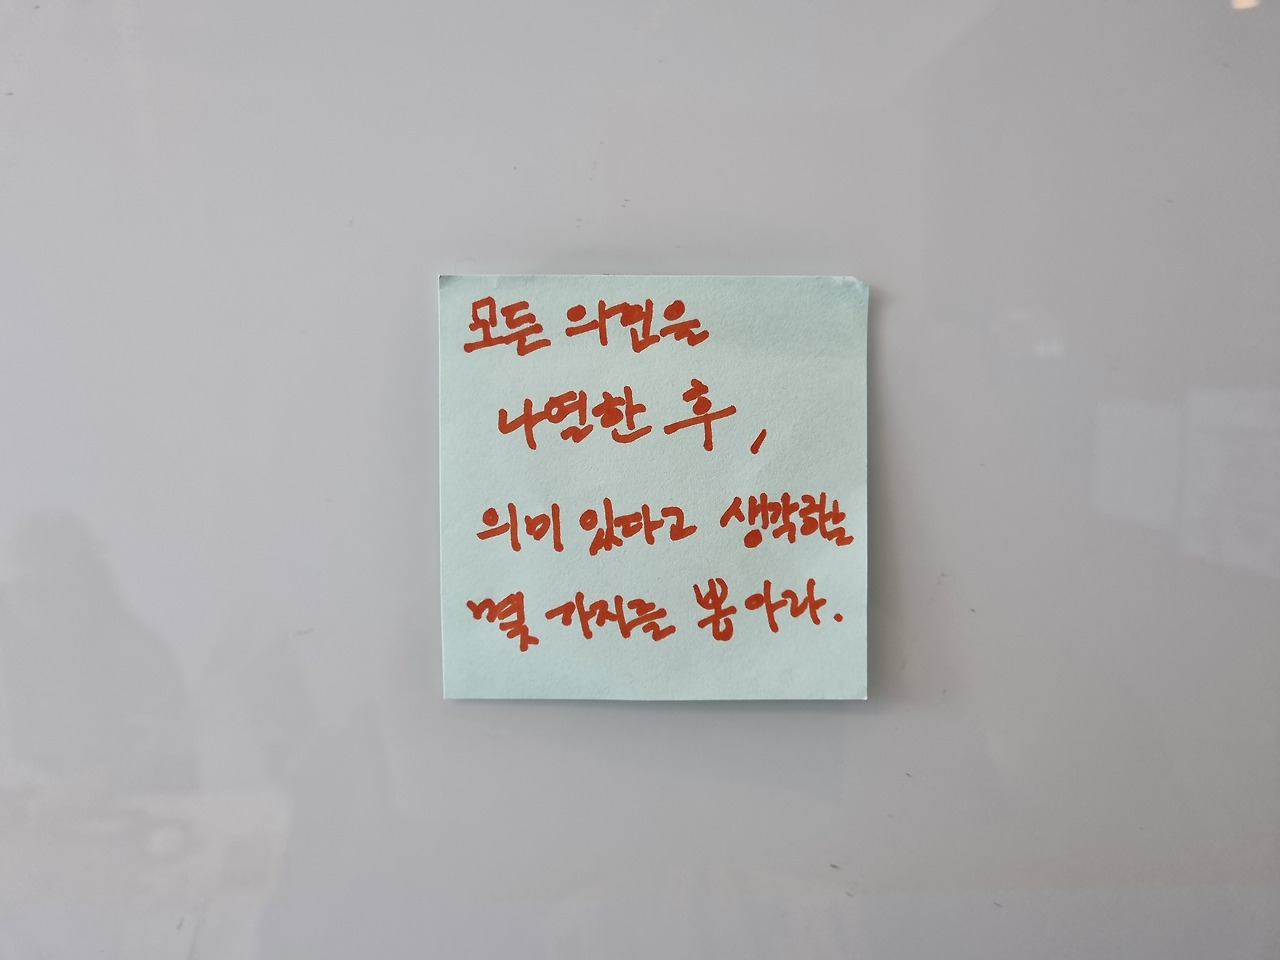 모든 의견을
나열한 후,
의미 있다고 생각하는
몇 가지를 뽑아라.